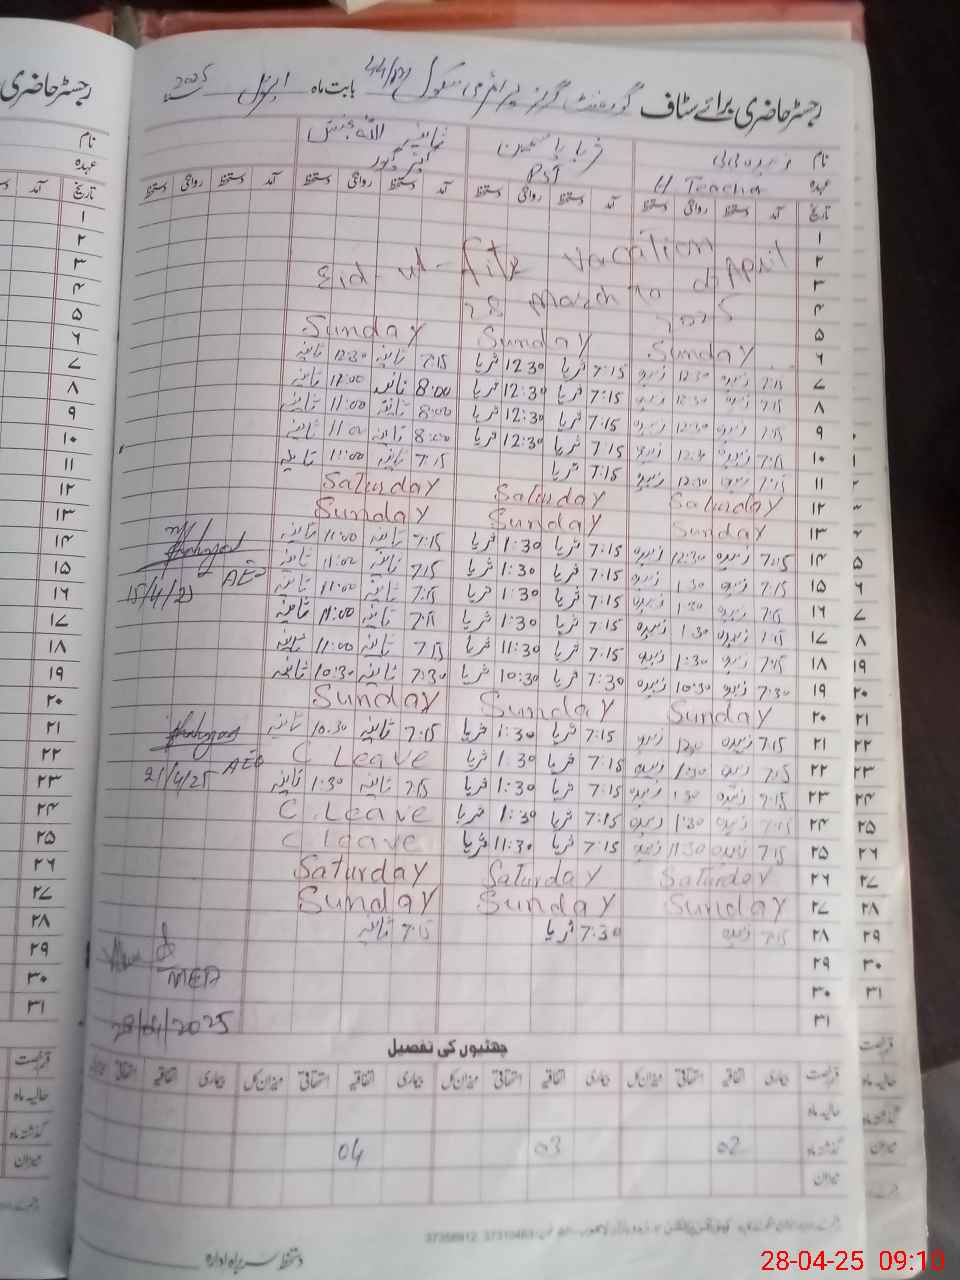 رجسٹر حاضری برائے سٹاف گورنمنٹ گرلز پرائمری سکول بابت ماہ اپریل 2025
نام زبیدہ بی بی ثریا یاسمین ثانیہ اللہ بخش
عہدہ H Teacher PST
تاریخ آمد دستخط روانگی دستخط آمد دستخط روانگی دستخط آمد دستخط روانگی دستخط آمد دستخط روانگی دستخط
۱
۲ Eid-ul-fitr vacation
۳ 28 march to 5 April
۴ 2025
۵
۶ Sunday Sunday Sunday
۷ 7:15 زبیدہ 12:30 زبیدہ 7:15 ثریا 12:30 ثریا 7:15 ثانیہ 12:30 ثانیہ
۸ 7:15 زبیدہ 12:30 زبیدہ 7:15 ثریا 12:30 ثریا 8:00 ثانیہ 12:00 ثانیہ
۹ 7:15 زبیدہ 12:30 زبیدہ 7:15 ثریا 12:30 ثریا 8:00 ثانیہ 11:00 ثانیہ
۱۰ 7:15 زبیدہ 12:30 زبیدہ 7:15 ثریا 12:30 ثریا 8:00 ثانیہ 11:00 ثانیہ
۱۱ 7:15 زبیدہ 12:30 زبیدہ 7:15 ثریا 7:15 ثانیہ 11:00 ثانیہ
۱۲ Saturday Saturday Saturday
۱۳ Sunday Sunday Sunday
۱۴ 7:15 زبیدہ 12:30 زبیدہ 7:15 ثریا 1:30 ثریا 7:15 ثانیہ 11:00 ثانیہ
۱۵ 7:15 زبیدہ 1:30 زبیدہ 7:15 ثریا 1:30 ثریا 7:15 ثانیہ 11:00 ثانیہ AEO
۱۶ 7:15 زبیدہ 1:30 زبیدہ 7:15 ثریا 1:30 ثریا 7:15 ثانیہ 11:00 ثانیہ 15/4/25
۱۷ 7:15 زبیدہ 1:30 زبیدہ 7:15 ثریا 1:30 ثریا 7:15 ثانیہ 11:00 ثانیہ
۱۸ 7:15 زبیدہ 1:30 زبیدہ 7:15 ثریا 11:30 ثریا 7:15 ثانیہ 11:00 ثانیہ
۱۹ 7:30 زبیدہ 10:30 زبیدہ 7:30 ثریا 10:30 ثریا 7:30 ثانیہ 10:30 ثانیہ
۲۰ Sunday Sunday Sunday
۲۱ 7:15 زبیدہ زبیدہ 7:15 ثریا 1:30 ثریا 7:15 ثانیہ 10:30 ثانیہ
۲۲ 7:15 زبیدہ 1:30 زبیدہ 7:15 ثریا 1:30 ثریا C Leave AEO
۲۳ 7:15 زبیدہ 1:30 زبیدہ 7:15 ثریا 1:30 ثریا 7:15 ثانیہ 1:30 ثانیہ 21/4/25
۲۴ 7:15 زبیدہ 1:30 زبیدہ 7:15 ثریا 1:30 ثریا C Leave
۲۵ 7:15 زبیدہ 11:30 زبیدہ 7:15 ثریا 11:30 ثریا C Leave
۲۶ Saturday Saturday Saturday
۲۷ Sunday Sunday Sunday
۲۸ 7:15 زبیدہ 7:30 ثریا 7:15 ثانیہ
۲۹
۳۰ MEA
۳۱ 28/04/2025
چھٹیوں کی تفصیل
قسم رخصت بیماری اتفاقیہ استحقاقی میزان کل بیماری اتفاقیہ استحقاقی میزان کل بیماری اتفاقیہ استحقاقی میزان کل بیماری اتفاقیہ استحقاقی
حالیہ ماہ
گذشتہ ماہ 02 03 04
میزان
دستخط سربراہ ادارہ
رجسٹر حاضری
نام
عہدہ
تاریخ آمد
۱
۲
۳
۴
۵
۶
۷
۸
۹
۱۰
۱۱
۱۲
۱۳
۱۴
۱۵
۱۶
۱۷
۱۸
۱۹
۲۰
۲۱
۲۲
۲۳
۲۴
۲۵
۲۶
۲۷
۲۸
۲۹
۳۰
۳۱
قسم رخصت
حالیہ ماہ
گذشتہ ماہ
میزان
28-04-25 09:10